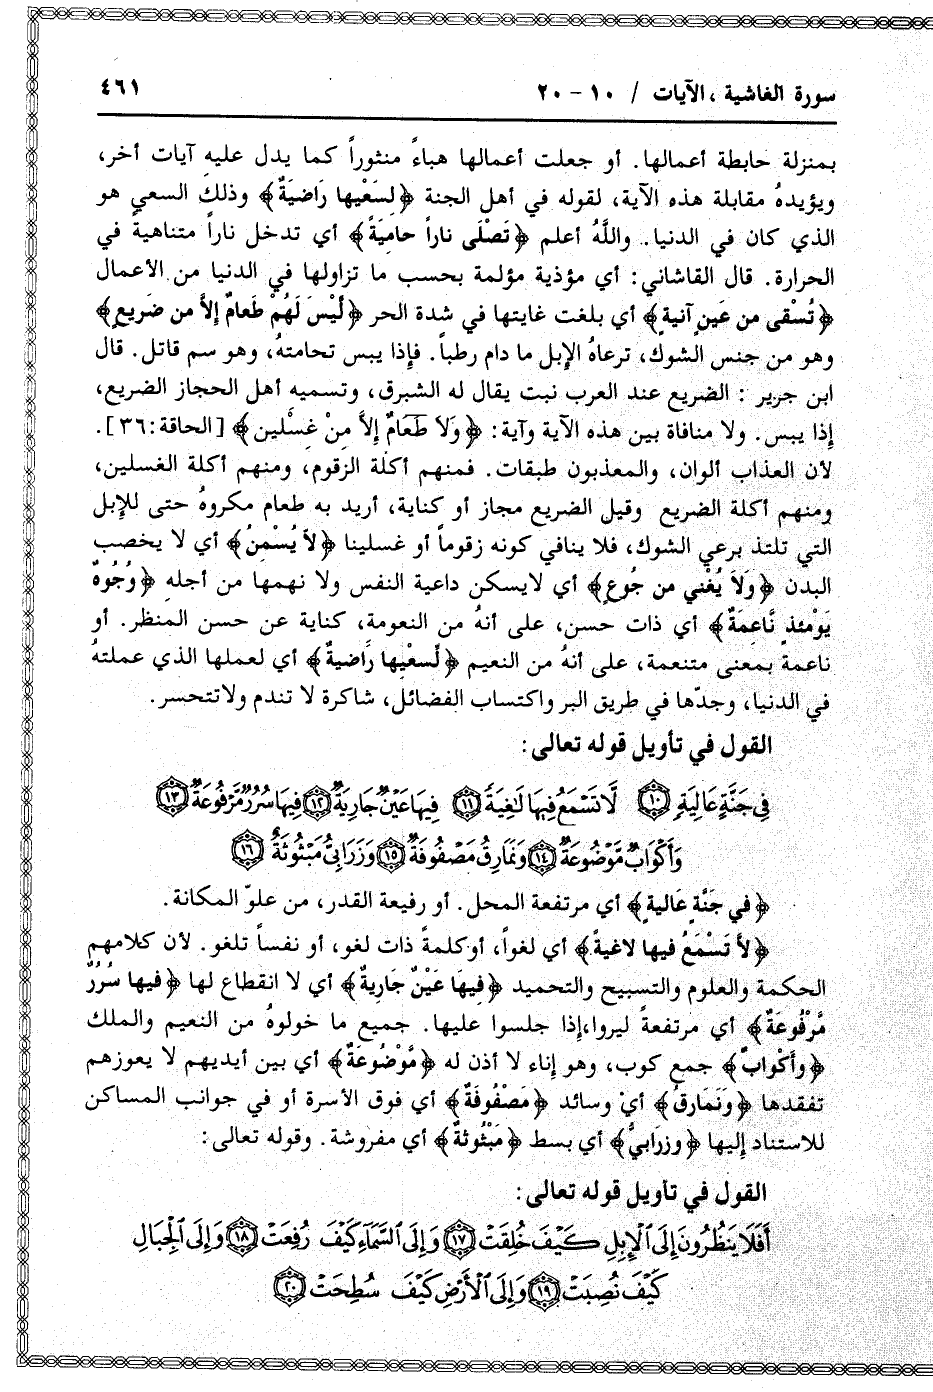 سورة الغاشية ، الآيات / ١٠ - ٢٠
٤٦١
بمنزلة حابطة أعمالها. أو جعلت أعمالها هباءً منثوراً كما يدل عليه آيات أخر،
ويؤيدهُ مقابلة هذه الآية، لقوله في أهل الجنة ﴿لسَعْيها رَاضيَةٌ﴾ وذلك السعي هو
الذي كان في الدنيا. واللَّهُ أعلم ﴿تَصْلَى ناراً حاميَةً﴾ أي تدخل ناراً متناهيةً في
الحرارة. قال القاشاني: أي مؤذية مؤلمة بحسب ما تزاولها في الدنيا من الأعمال
﴿تُسْقى من عَينٍ آنية﴾ أي بلغت غايتها في شدة الحر ﴿لَيْسَ لَهُمْ طَعامٌ إلاَّ من ضَريعٍ﴾
وهو من جنس الشوك، ترعاهُ الإبل ما دام رطباً. فإذا يبس تحامتهُ، وهو سم قاتل. قال
ابن جرير : الضريع عند العرب نبت يقال له الشبرق، وتسميه أهل الحجاز الضريع،
إذا يبس. ولا منافاة بين هذه الآية وآية: ﴿وَلاَ طَعامٌ إلاَّ مِنْ غِسْلين﴾ [الحاقة:٣٦].
لأن العذاب ألوان، والمعذبون طبقات. فمنهم أكلة الزقوم، ومنهم أكلة الغسلين،
ومنهم أكلة الضريع وقيل الضريع مجاز أو كناية، أريد به طعام مكروهُ حتى للإبل
التي تلتذ برعي الشوك، فلا ينافي كونه زقوماً أو غسلينا ﴿لاَ يُسْمنُ﴾ أي لا يخصب
البدن ﴿وَلاَ يُغْني من جُوعٍ﴾ أي لايسكن داعية النفس ولا نهمها من أجله ﴿وُجُوهٌ
يَوْمئذٍ نَّاعمَةٌ﴾ أي ذات حسن، على أنهُ من النعومة، كناية عن حسن المنظر. أو
ناعمة بمعنى متنعمة، على أنهُ من النعيم ﴿لَسعْيها رَاضيةٌ﴾ أي لعملها الذي عملتهُ
في الدنيا، وجدّها في طريق البر واكتساب الفضائل، شاكرة لا تندم ولاتتحسر.
القول في تأويل قوله تعالى:
فِي جَنَّةٍ عَالِيَةٍ ١٠ لَّا تَسْمَعُ فِيهَا لَاغِيَةً ١١ فِيهَا عَيْنٌ جَارِيَةٌ ١٢ فِيهَا سُرُرٌ مَّرْفُوعَةٌ ١٣
وَأَكْوَابٌ مَّوْضُوعَةٌ ١٤ وَنَمَارِقُ مَصْفُوفَةٌ ١٥ وَزَرَابِيُّ مَبْثُوثَةٌ ١٦
﴿في جَنَّة عَالية﴾ أي مرتفعة المحل. أو رفيعة القدر، من علوّ المكانة.
﴿لاَ تَسْمَعُ فيها لاغيةً﴾ أي لغواً، أوكلمةً ذات لغو، أو نفساً تلغو. لأن كلامهم
الحكمة والعلوم والتسبيح والتحميد ﴿فِيهَا عَيْنٌ جَارِيةٌ﴾ أي لا انقطاع لها ﴿فيها سُرُرٌ
مَّرْفُوعَةٌ﴾ أي مرتفعةً ليروا،إذا جلسوا عليها. جميع ما خولوهُ من النعيم والملك
﴿وأَكْوابٌ﴾ جمع كوب، وهو إناء لا أذن له ﴿مَّوْضُوعَةٌ﴾ أي بين أيديهم لا يعوزهم
تفقدها ﴿وَنَمَارقُ﴾ أيْ وسائد ﴿مَصْفُوفَةٌ﴾ أي فوق الأسرة أو في جوانب المساكن
للاستناد إليها ﴿وزرَابيُّ﴾ أي بسط ﴿مَبْثُوثةٌ﴾ أي مفروشة. وقوله تعالى:
القول في تأويل قوله تعالى:
أَفَلَا يَنظُرُونَ إِلَى الْإِبِلِ كَيْفَ خُلِقَتْ ١٧ وَإِلَى السَّمَاءِ كَيْفَ رُفِعَتْ ١٨ وَإِلَى الْجِبَالِ
كَيْفَ نُصِبَتْ ١٩ وَإِلَى الْأَرْضِ كَيْفَ سُطِحَتْ ٢٠